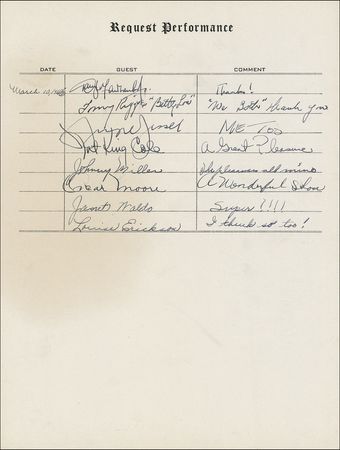 Request Performance
DATE GUEST COMMENT
March 10, Thanks!
Tommy Riggs "Betty Lou" "We Both" thank you
Wayne ME TOO
Nat King Cole A Great Pleasure
Johnny Miller The pleasure all mine
Oscar Moore A Wonderful Show
Janet Waldo Super!!!!
Louise Erickson I think so too!